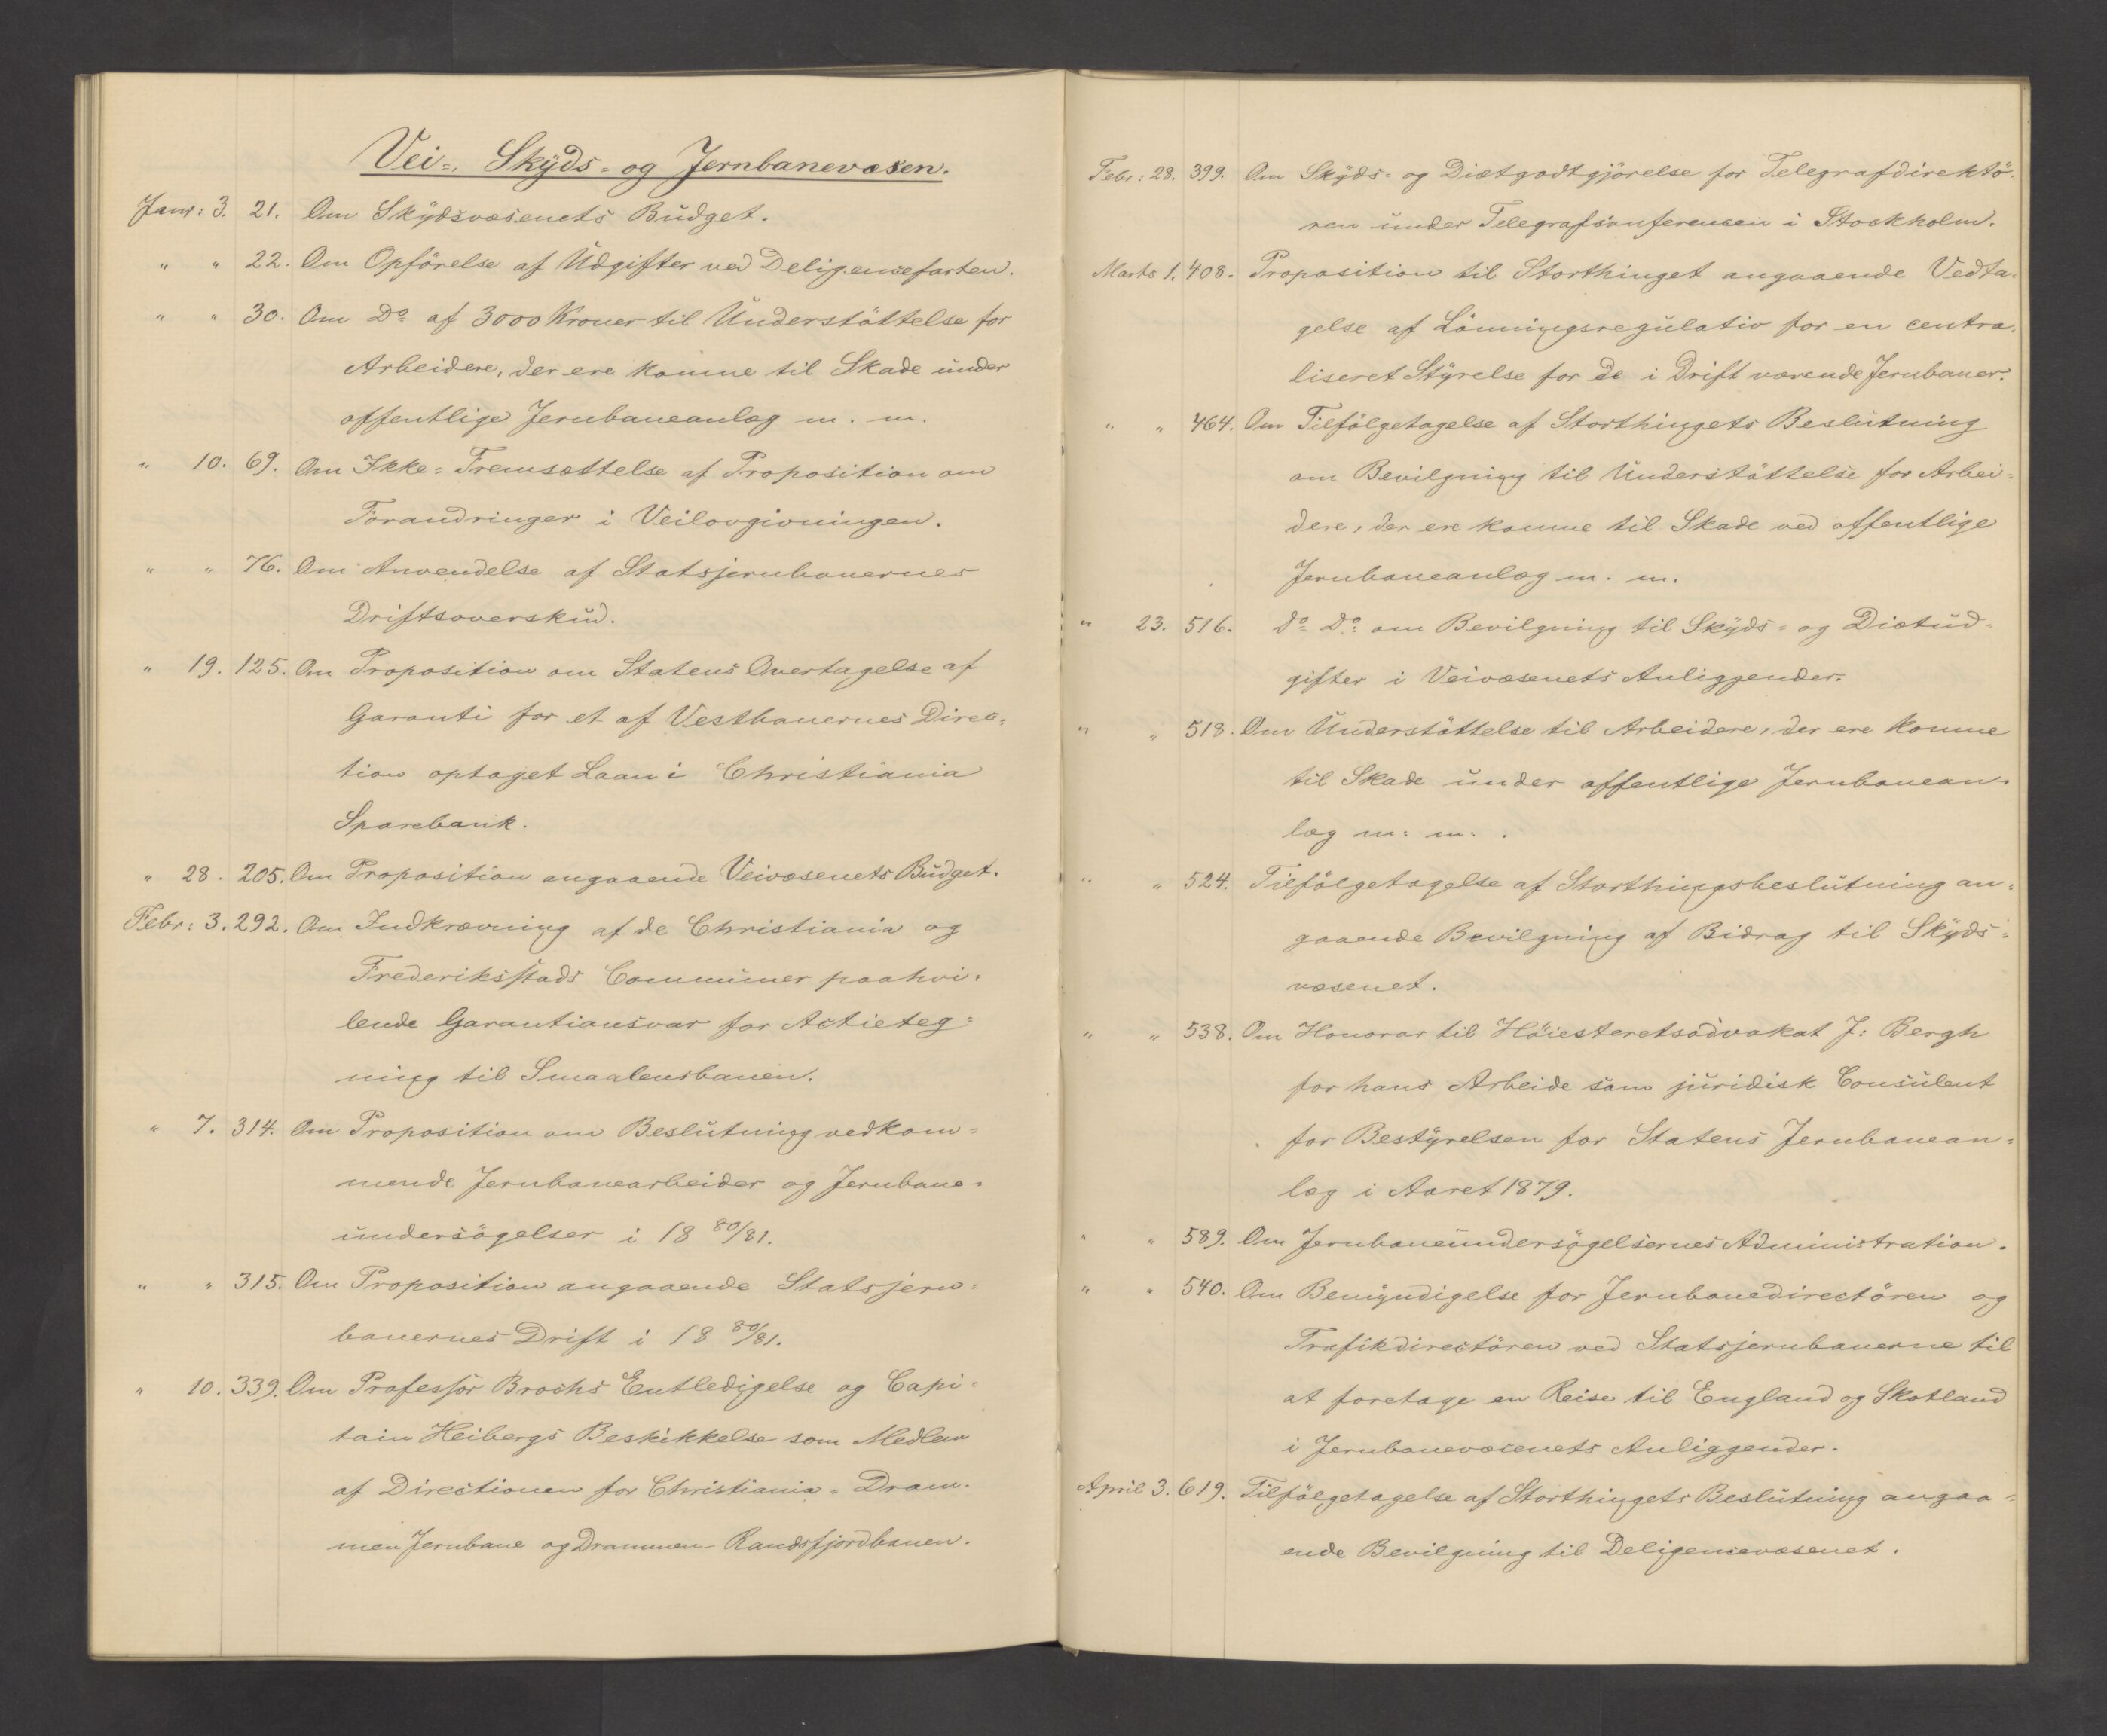 Vei-, Skÿds- og Jernbanevæsen.
Janr: 3. 21. Om Skÿdsvæsenets Büdget.
" " 22. Om Opförelse af Udgifter ved Deligencefarten.
" " 30. Om Do af 3000 Kroner til Understöttelse for
Arbeidere, der ere komne til Skade ünder
offentlige Jernbaneanlæg m. m.
" 10. 69. Om Ikke-Fremsættelse af Proposition om
Forandringer i Veilovgivningen.
" " 76. Om Anvendelse af Statsjernbanernes
Driftsoverskud.
" 19. 125. Om Proposition om Statens Overtagelse af
Garanti for et af Vestbanernes Direc-
tion optaget Laan i Christiania
Sparebank.
" 28. 205. Om Proposition angaaende Veivæsenets Büdget.
Febr: 3. 292. Om Indkrævning af de Christiania og
Frederiksstads Communer paahvi-
lende Garantiansvar for Actieteg-
ning til Smaalensbanen.
" 7. 314. Om Proposition om Beslütning vedkom-
mende Jernbanearbeider og Jernbane-
ündersögelser i 18 80/81.
" " 315. Om Proposition angaaende Statsjern-
banernes Drift i 18 80/81.
" 10. 339. Om Professor Brochs Entledigelse og Capi-
tain Heibergs Beskikkelse som Medlem
af Directionen for Christiania-Dram-
men Jernbane og Drammen-Randsfjordbanen.
Febr: 28. 399. Om Skÿds- og Diætgodtgjörelse for Telegrafdirektö-
ren ünder Telegrafconferencen i Stockholm.
Marts 1. 408. Proposition til Storthinget angaaende Vedta-
gelse af Lönningsregülativ for en centra-
liseret Stÿrelse for de i Drift værende Jernbaner.
" " 464. Om Tilfölgetagelse af Storthingets Beslütning
om Bevilgning til Understöttelse for Arbei-
dere, der ere komne til Skade ved offentlige
Jernbaneanlæg m. m.
" 23. 516. do Do: om Bevilgning til Skÿds- og Diætüd-
gifter i Veivæsenets Anliggender.
" " 518. Om Understöttelse til Arbeidere, der ere komne
til Skade ünder offentlige Jernbanean-
læg m: m: .
" " 524. Tilfölgetagelse af Storthingsbeslütning an-
gaaende Bevilgning af Bidrag til Skÿds-
væsenet.
" " 538. Om Honorar til Höiesteretsadvokat J: Bergh
for hans Arbeide som jüridisk Consülent
for Bestÿrelsen for Statens Jernbanean-
læg i Aaret 1879.
" " 589. Om Jernbaneündersøgelsernes Administration.
" " 540. Om Bemÿndigelse for Jernbanedirectören og
Trafikdirectören ved Statsjernbanerne til
at foretage en Reise til England og Skotland
i Jernbanevæsenets Anliggender.
April 3. 619. Tilfölgetagelse af Storthingets Beslütning angaa-
ende Bevilgning til Deligencevæsenet.